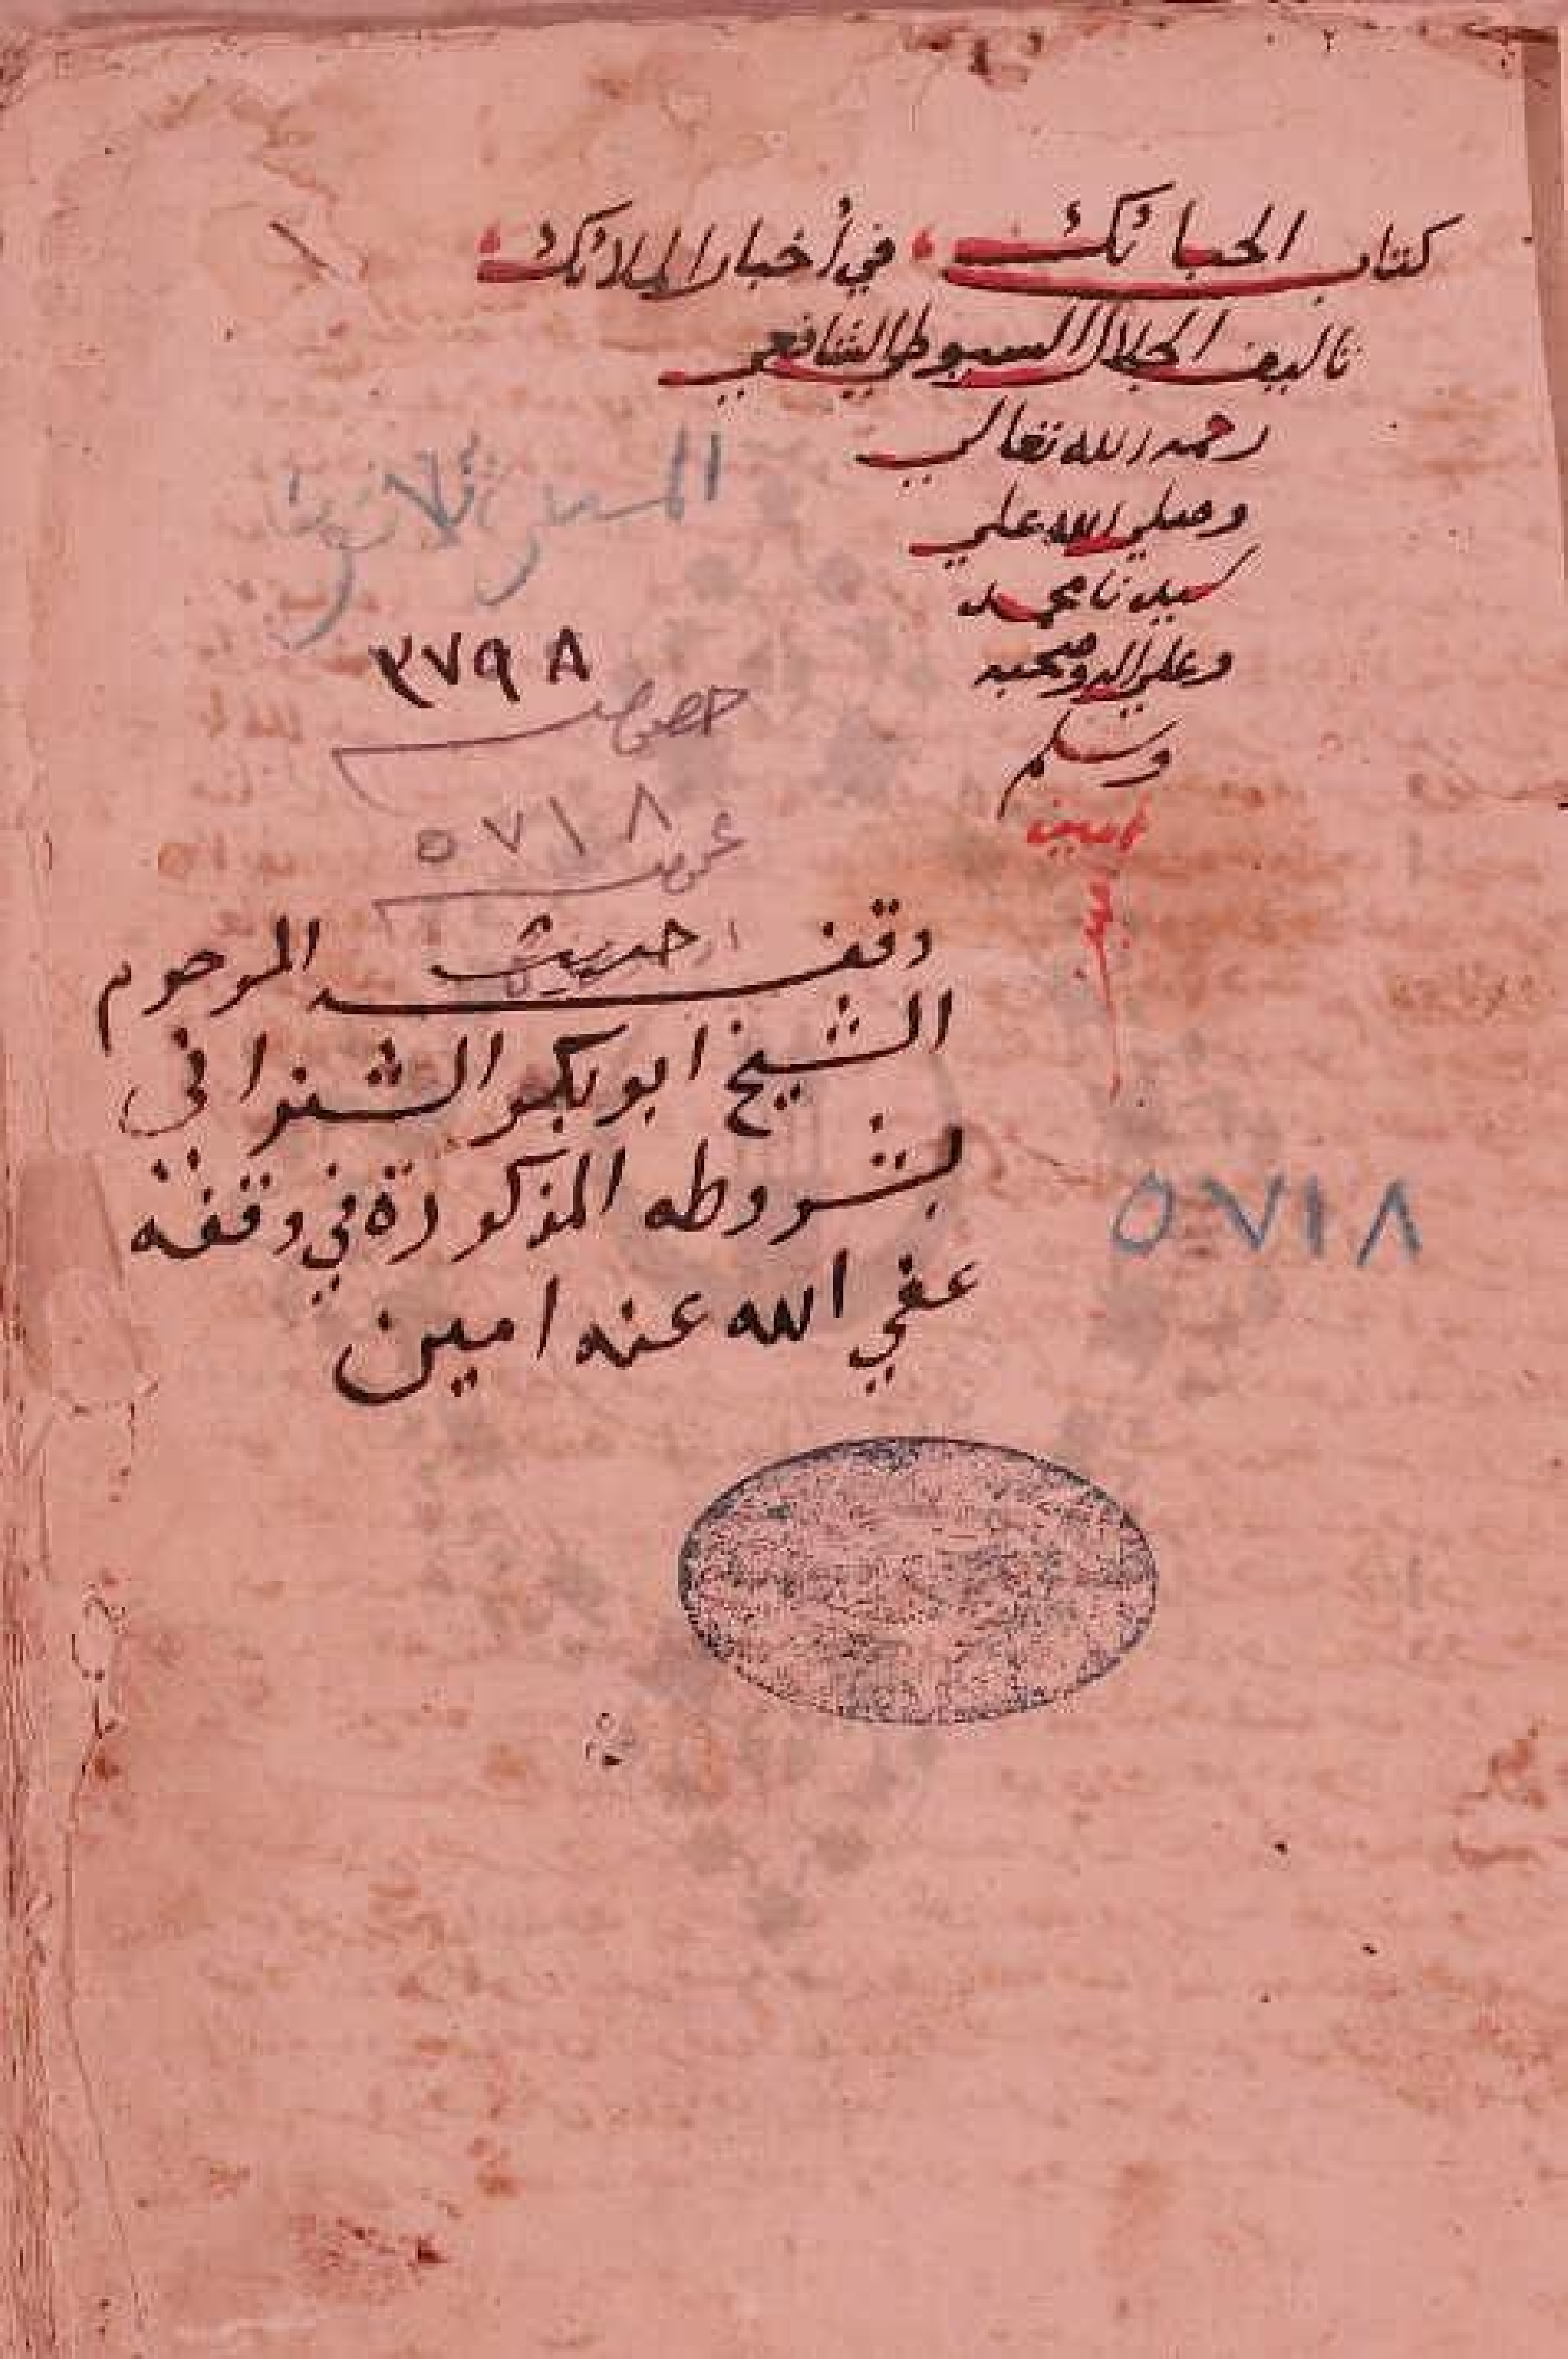 كتاب الحبائك في أخبار الملائك
تاليف الجلال السيوطي الشافعي
رحمه الله تعالي
وصلي الله علي
سيدنا محمد
وعلي اله وصحبه
وسلم
امين
٣٧٩٨
خصوصية
٥٧١٨
عمومية
حديث
وقف المرحوم
الشيخ ابو بكر الشنواني
بشروطه المذكورة في وقفه
عفي الله عنه امين
٥٧١٨